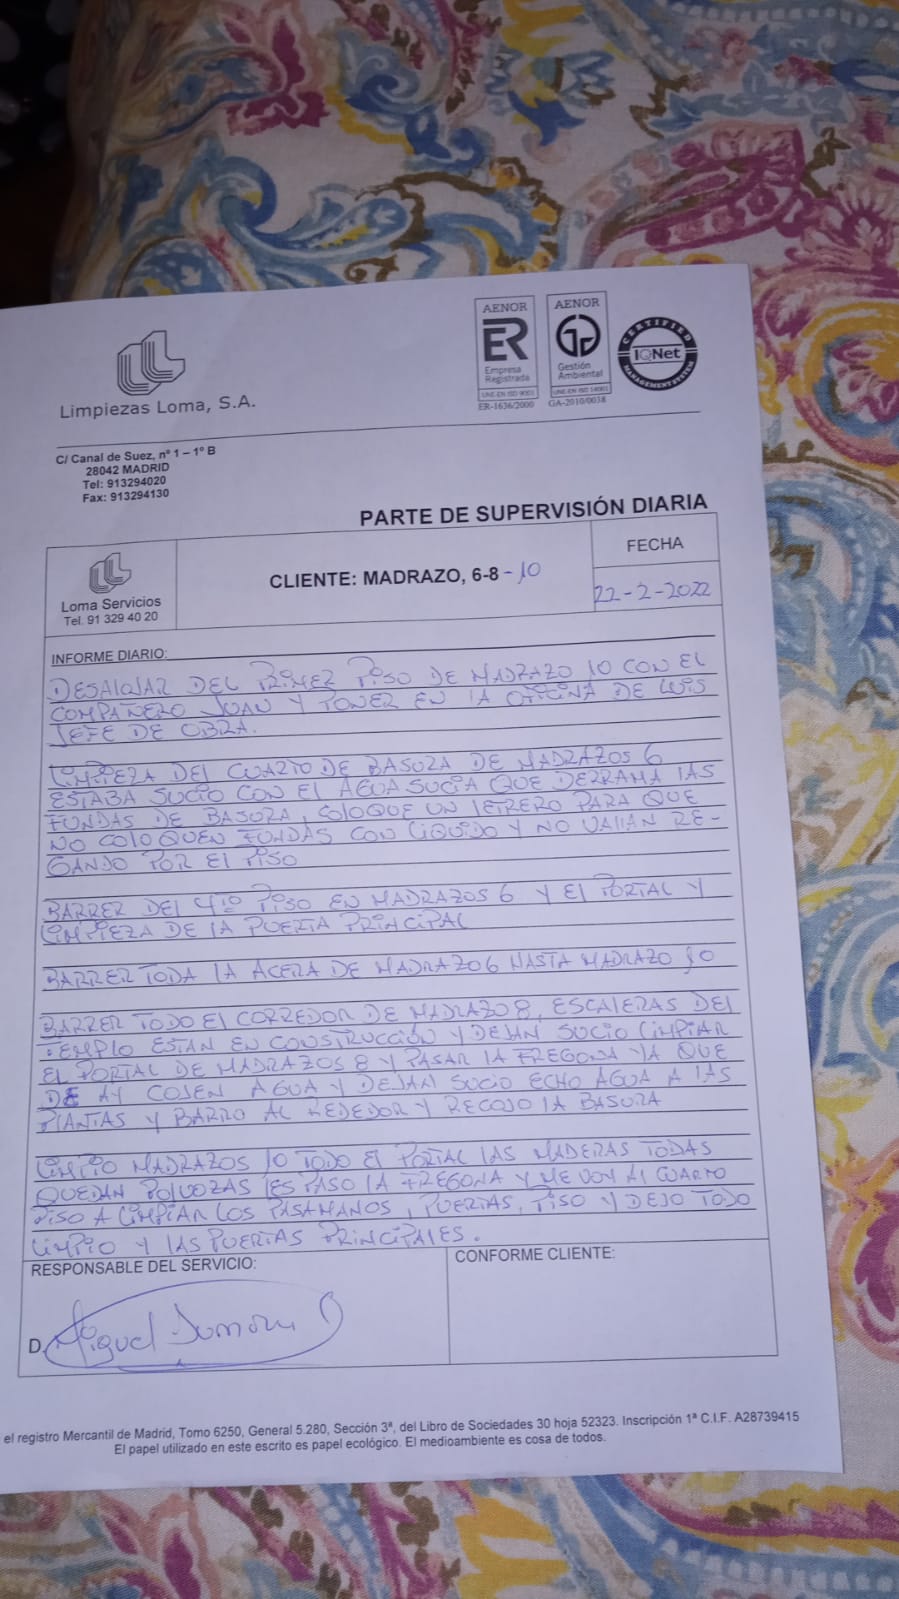 Limpiezas Loma, S.A.
AENOR
ER
Empresa
Registrada
UNE-EN ISO 9001
ER-1636/2000
AENOR
Gestión
Ambiental
UNE-EN ISO 14001
GA-2010/0038
CERTIFIED
IQNet
MANAGEMENT SYSTEM
C/ Canal de Suez, nº 1 – 1º B
28042 MADRID
Tel: 913294020
Fax: 913294130
PARTE DE SUPERVISIÓN DIARIA
Loma Servicios
Tel. 91 329 40 20
CLIENTE: MADRAZO, 6-8-10
FECHA
22-2-2022
INFORME DIARIO:
DESALOJAR DEL PRIMER PISO DE MADRAZO 10 CON EL
COMPAÑERO JUAN Y PONER EN LA OFICINA DE LUIS
JEFE DE OBRA.
LIMPIEZA DEL CUARTO DE BASURA DE MADRAZOS 6
ESTABA SUCIO CON EL AGUA SUCIA QUE DERRAMA LAS
FUNDAS DE BASURA, COLOQUE UN LETRERO PARA QUE
NO COLOQUEN FUNDAS CON LIQUIDO Y NO VALLAN RE-
GANDO POR EL PISO
BARRER DEL 4º PISO EN MADRAZOS 6 Y EL PORTAL Y
LIMPIEZA DE LA PUERTA PRINCIPAL
BARRER TODA LA ACERA DE MADRAZO 6 HASTA MADRAZO 10
BARRER TODO EL CORREDOR DE MADRAZO 8, ESCALERAS DEL
TEMPLO ESTAN EN CONSTRUCCIÓN Y DEJAN SUCIO LIMPIAR
EL PORTAL DE MADRAZOS 8 Y PASAR LA FREGONA YA QUE
DE AY COJEN AGUA Y DEJAN SUCIO ECHO AGUA A LAS
PLANTAS Y BARRO AL REDEDOR Y RECOJO LA BASURA
LIMPIO MADRAZOS 10 TODO EL PORTAL LAS MADERAS TODAS
QUEDAN POLVOZAS LES PASO LA FREGONA Y ME VOY AL CUARTO
PISO A LIMPIAR LOS PASAMANOS, PUERTAS, PISO Y DEJO TODO
LIMPIO Y LAS PUERTAS PRINCIPALES.
RESPONSABLE DEL SERVICIO:
CONFORME CLIENTE:
D. Miguel
el registro Mercantil de Madrid, Tomo 6250, General 5.280, Sección 3ª, del Libro de Sociedades 30 hoja 52323. Inscripción 1ª C.I.F. A28739415
El papel utilizado en este escrito es papel ecológico. El medioambiente es cosa de todos.